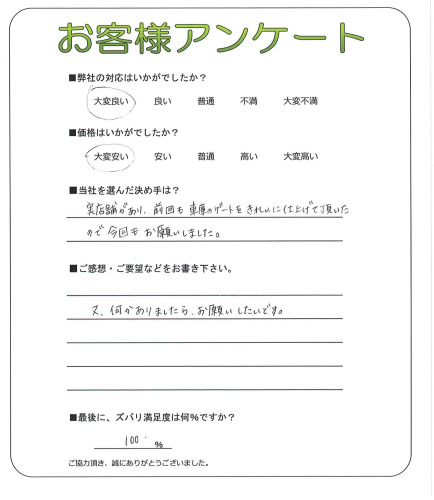 お客様アンケート
■弊社の対応はいかがでしたか？
大変良い 良い 普通 不満 大変不満
■価格はいかがでしたか？
大変安い 安い 普通 高い 大変高い
■当社を選んだ決め手は？
実店舗があり、前回も車庫のゲートをきれいに仕上げて頂いた
ので今回もお願いしました。
■ご感想・ご要望などをお書き下さい。
又、何かありましたら、お願いしたいです。
■最後に、ズバリ満足度は何%ですか？
100 %
ご協力頂き、誠にありがとうございました。